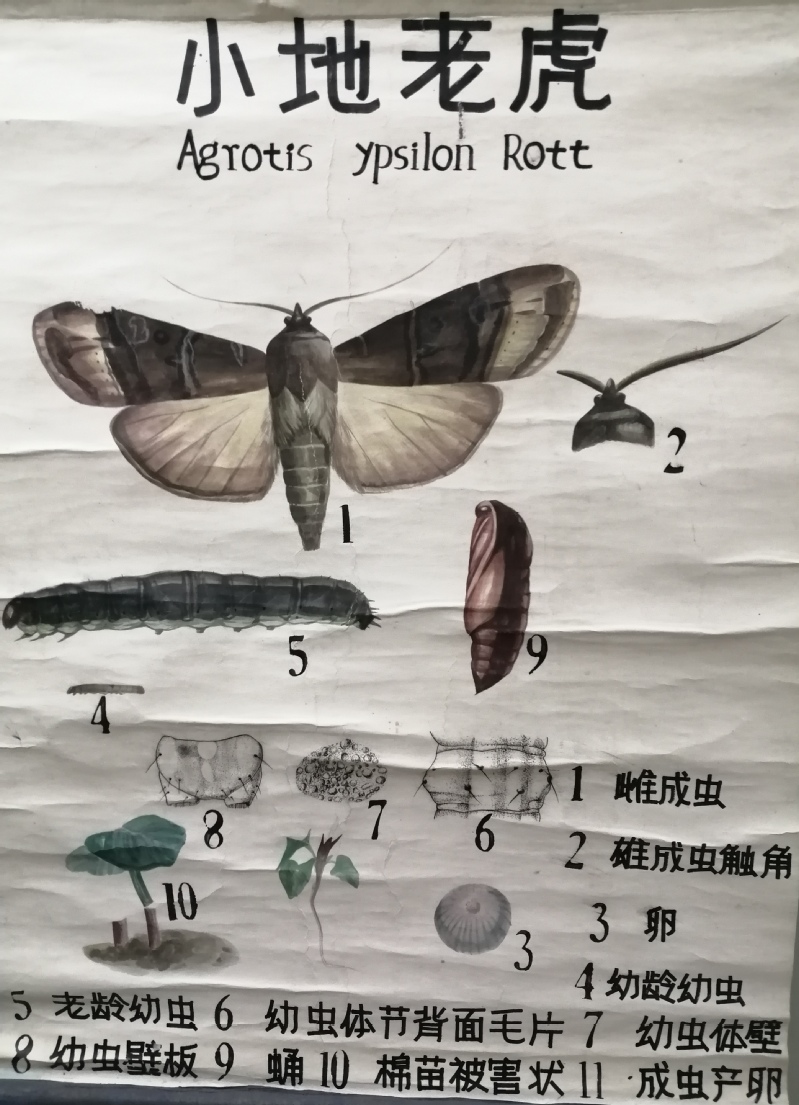 小地老虎
Agrotis ypsilon Rott
2
1
9
5
4
8
7
6
1 雌成虫
2 雄成虫触角
10
3
3 卵
4 幼龄幼虫
5 老龄幼虫 6 幼虫体节背面毛片 7 幼虫体壁
8 幼虫臀板 9 蛹 10 棉苗被害状 11 成虫产卵